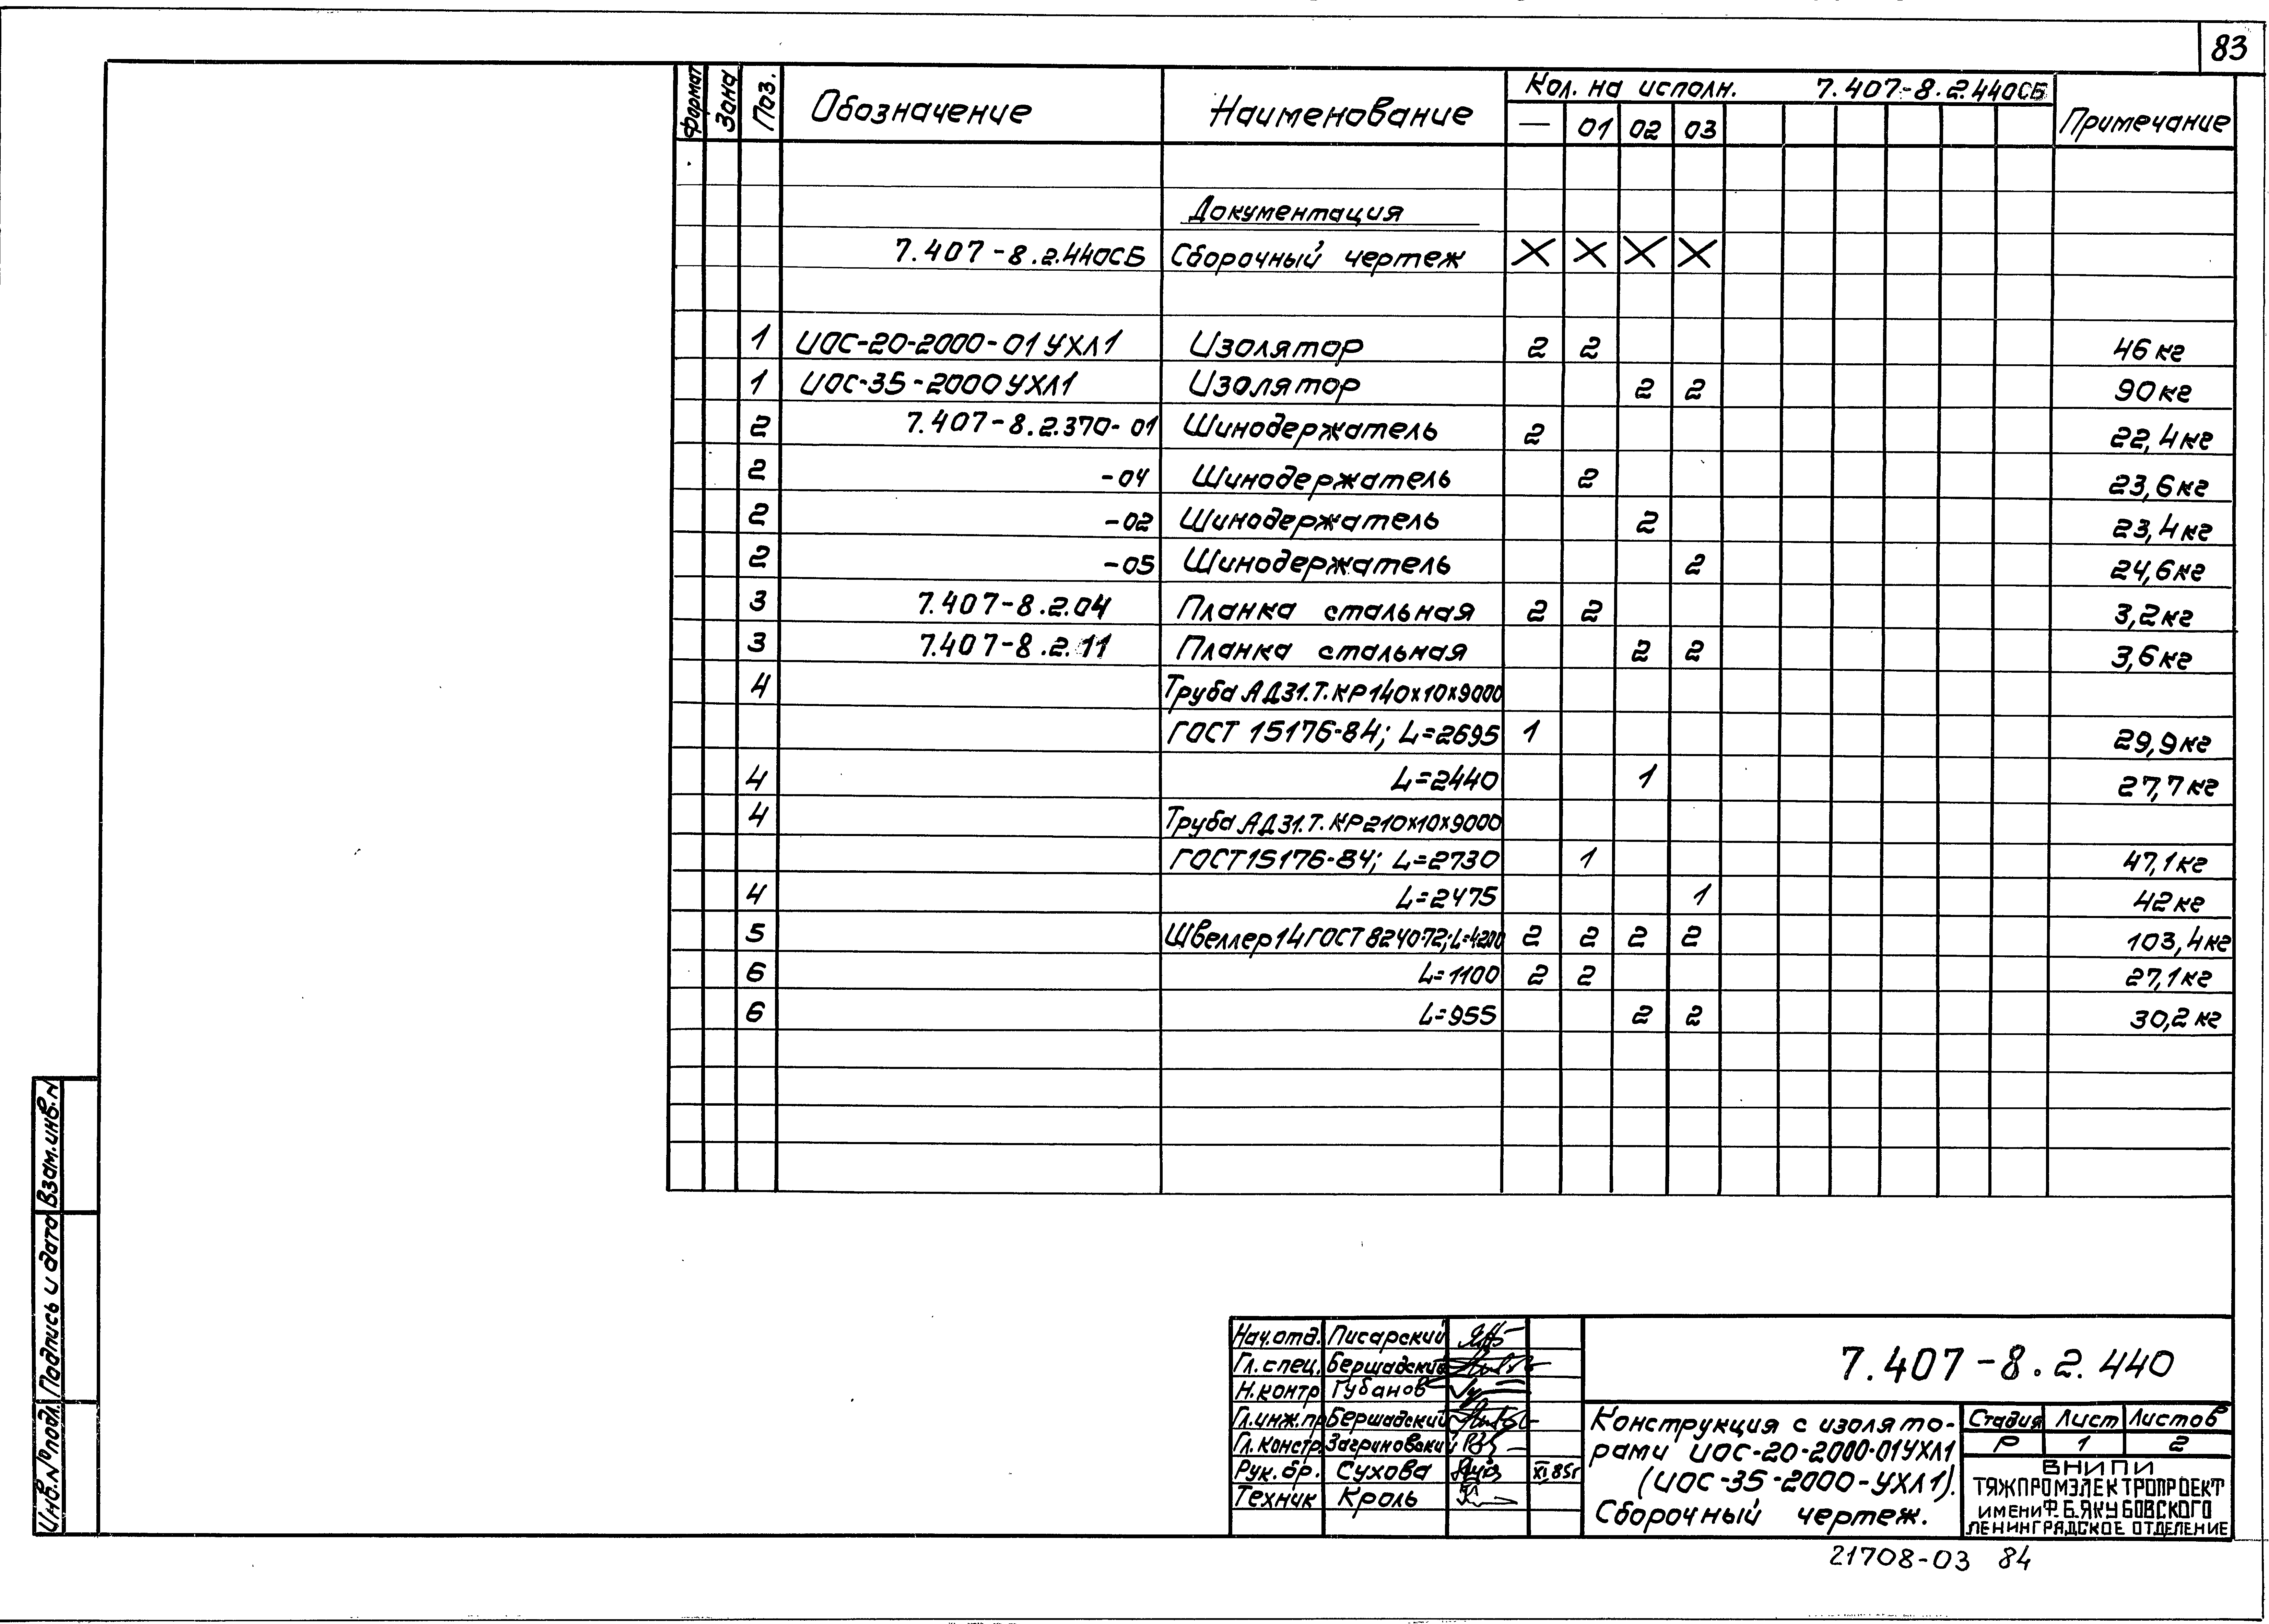 83
Формат Зона Поз. Обозначение Наименование Кол. на исполн. 7.407-8.2.440СБ Примечание
— 01 02 03
Документация
7.407-8.2.440СБ Сборочный чертеж X X X X
1 ИОС-20-2000-01 УХЛ1 Изолятор 2 2 46 кг
1 ИОС-35-2000 УХЛ1 Изолятор 2 2 90 кг
2 7.407-8.2.370-01 Шинодержатель 2 22,4 кг
2 -04 Шинодержатель 2 23,6 кг
2 -02 Шинодержатель 2 23,4 кг
2 -05 Шинодержатель 2 24,6 кг
3 7.407-8.2.04 Планка стальная 2 2 3,2 кг
3 7.407-8.2.11 Планка стальная 2 2 3,6 кг
4 Труба АД31.Т.КР140х10х9000
ГОСТ 15176-84; L=2695 1 29,9 кг
4 L=2440 1 27,7 кг
4 Труба АД31.Т.КР210х10х9000
ГОСТ 15176-84; L=2730 1 47,1 кг
4 L=2475 1 42 кг
5 Швеллер 14 ГОСТ 8240-72; L=4200 2 2 2 2 103,4 кг
6 L=1100 2 2 27,1 кг
6 L=955 2 2 30,2 кг
Взам. инв. N
Подпись и дата
Инв. № подл.
Нач. отд. Писарский
Гл. спец. Бершадский
Н. контр Губанов
Гл. инж. пр Бершадский
Гл. констр. Загриновский
Рук. бр. Сухова XI.85г
Техник Кроль
7.407-8.2.440
Конструкция с изолято-
рами ИОС-20-2000-01УХЛ1
(ИОС-35-2000-УХЛ1).
Сборочный чертеж.
Стадия Лист Листов
Р 1 2
ВНИПИ
ТЯЖПРОМЭЛЕКТРОПРОЕКТ
ИМЕНИ Ф.Б.ЯКУБОВСКОГО
ЛЕНИНГРАДСКОЕ ОТДЕЛЕНИЕ
21708-03 84